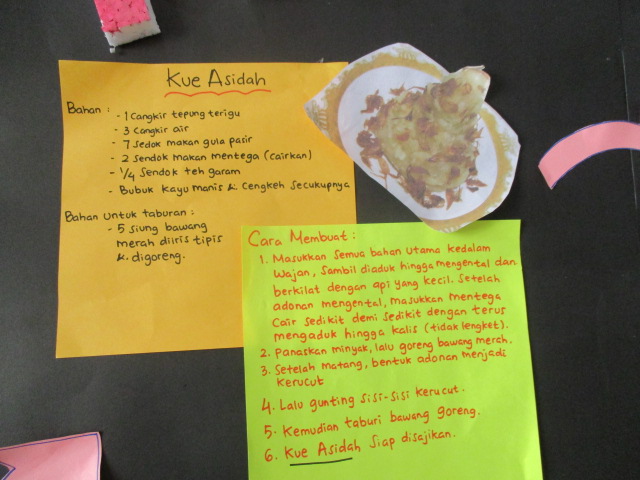 Kue Asidah
Bahan :
- 1 Cangkir tepung terigu
- 3 Cangkir air
- 7 Sedok makan gula pasir
- 2 Sendok makan mentega (cairkan)
- 1/4 Sendok teh garam
- Bubuk Kayu manis & Cengkeh Secukupnya
Bahan untuk taburan :
- 5 siung bawang
merah diiris tipis
& digoreng.
Cara Membuat :
1. Masukkan Semua bahan utama kedalam
Wajan, Sambil diaduk hingga mengental dan
berkilat dengan api yang kecil. Setelah
adonan mengental, masukkan mentega
Cair sedikit demi sedikit dengan terus
mengaduk hingga kalis (tidak lengket).
2. Panaskan minyak, lalu goreng bawang merah.
3. Setelah matang, bentuk adonan menjadi
kerucut
4. Lalu gunting sisi-sisi kerucut.
5. Kemudian taburi bawang goreng.
6. Kue Asidah Siap disajikan.